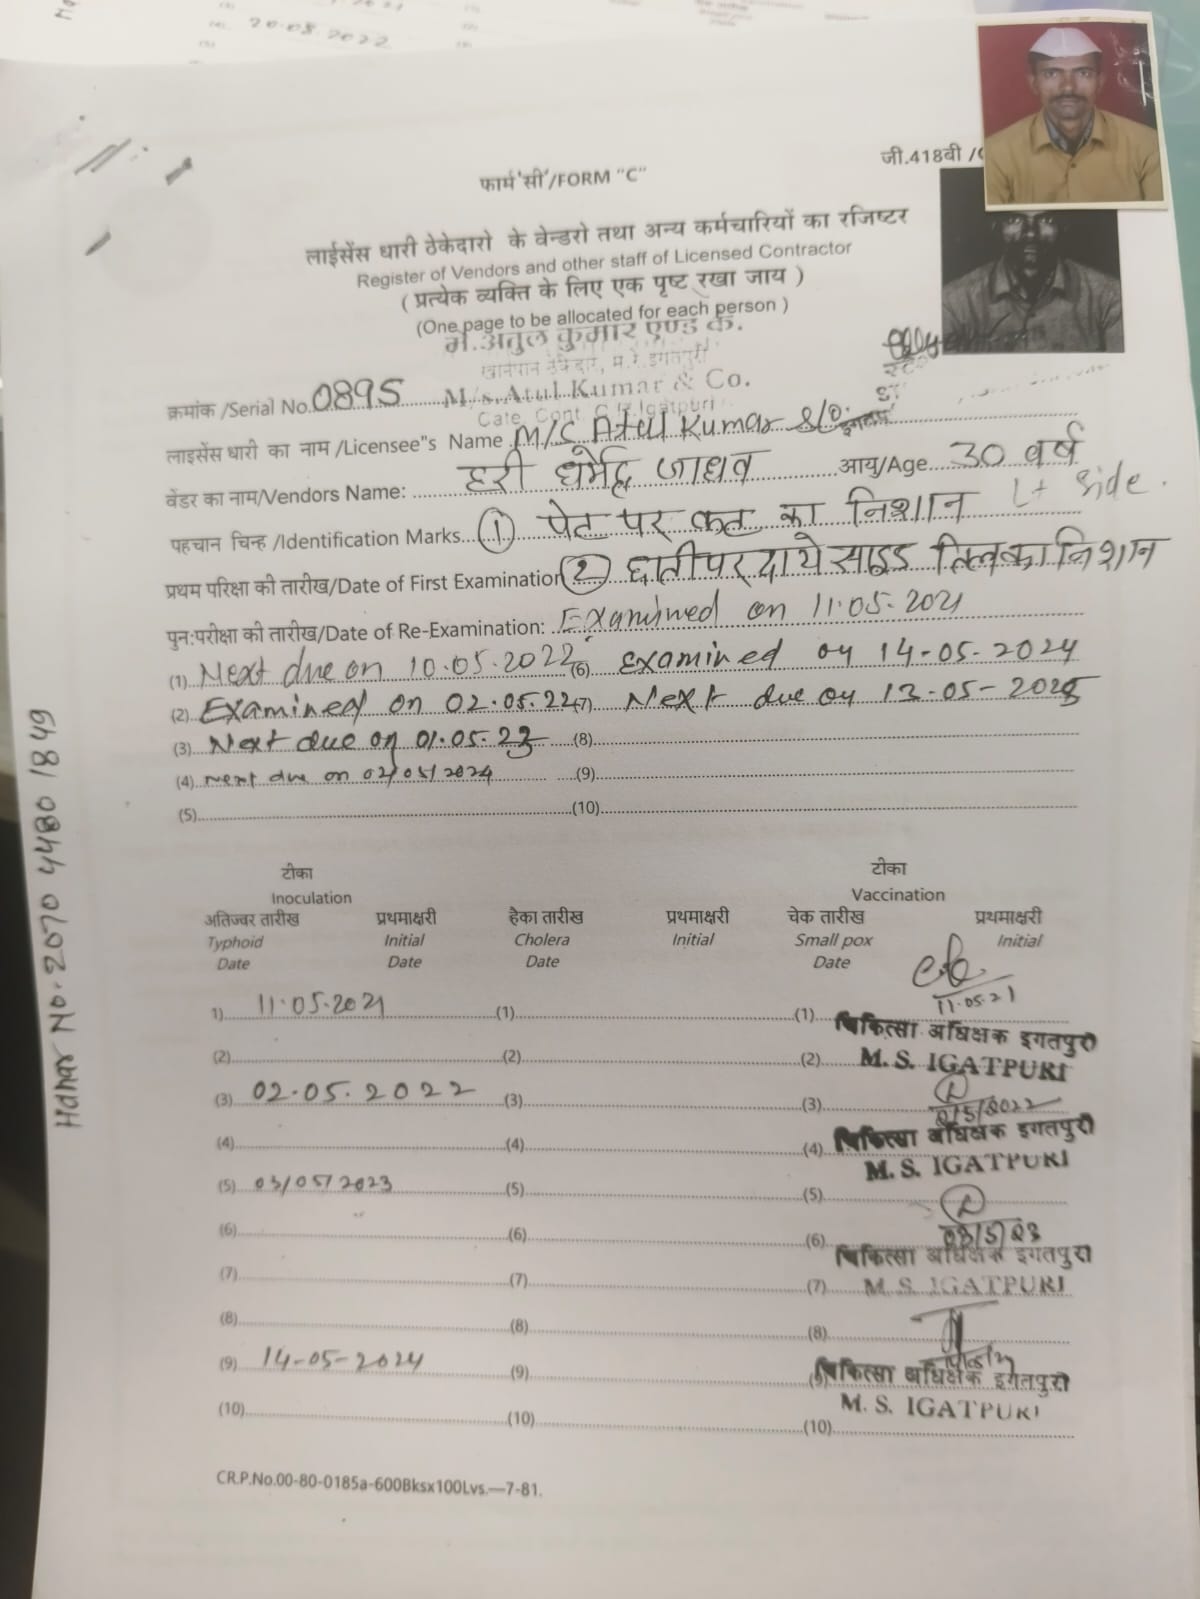 20.08.2022
जी.418बी /
फार्म 'सी'/FORM "C"
लाईसेंस धारी ठेकेदारो के वेन्डरो तथा अन्य कर्मचारियों का रजिष्टर
Register of Vendors and other staff of Licensed Contractor
( प्रत्येक व्यक्ति के लिए एक पृष्ट रखा जाय )
(One page to be allocated for each person )
मे.अतुल कुमार एण्ड कं.
खानपान ठेकेदार, म.रे. इगतपुरी
क्रमांक /Serial No. 0895 M/s. Atul Kumar & Co.
Cate. Cont. C. Rly. Igatpuri
लाइसेंस धारी का नाम /Licensee"s Name M/C Atul Kumar
वेंडर का नाम/Vendors Name: हरी धर्मेंद्र जाधव आयु/Age 30 वर्ष
पहचान चिन्ह /Identification Marks (1) पेट पर कट का निशान Lt side.
प्रथम परिक्षा की तारीख/Date of First Examination (2) छातीपर दाये साइड तिलका निशान
पुन:परीक्षा की तारीख/Date of Re-Examination: Examined on 11.05.2021
(1) Next due on 10.05.2022 (6) Examined on 14-05-2024
(2) Examined on 02.05.22 (7) Next due on 13-05-2025
(3) Next due on 01.05.23 (8)
(4) Next due on 02/05/2024 (9)
(5) (10)
टीका टीका
Inoculation Vaccination
अतिज्वर तारीख प्रथमाक्षरी हैका तारीख प्रथमाक्षरी चेक तारीख प्रथमाक्षरी
Typhoid Initial Cholera Initial Small pox Initial
Date Date Date Date
11.05.21
1) 11.05.2021 (1) (1) चिकित्सा अधिक्षक इगतपुरी
(2) (2) (2) M. S. IGATPURI
(3) 02.05.2022 (3) (3) 2/5/2022
(4) (4) (4) चिकित्सा अधिक्षक इगतपुरी
M. S. IGATPURI
(5) 03/05/2023 (5) (5)
(6) (6) (6) 03/5/23
चिकित्सा अधिक्षक इगतपुरी
(7) (7) (7) M. S. IGATPURI
(8) (8) (8)
(9) 14-05-2024 (9) (9) चिकित्सा अधिक्षक इगतपुरी
M. S. IGATPURI
(10) (10) (10)
CR.P.No.00-80-0185a-600Bksx100Lvs.—7-81.
No. 2070 4480 1849